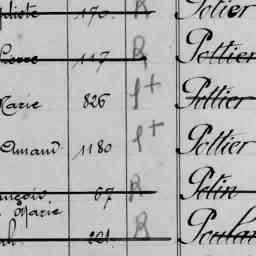 170. R Potier
Pierre 117 R Pottier
Marie 826 f+ Pottier
Amand 1180 f+ Pottier
67 R Potin
Marie
221. R Poular